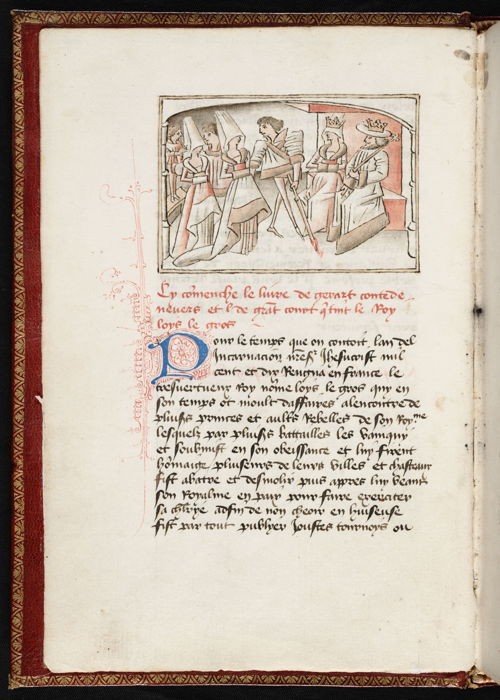 Cy cõmenche le liure de gerart conte de
neuers et l. de grãt court q̃ tint le Roy
loys le gros
Pour le temps que on contoit lan del
Incarnacion nrẽ sr̃ Jhesucrist mil
cent et dix Reugna en france le
tresuertueux roy nõme loys le gros quy en
son temps ot moult daffaires alencontre de
pluisʳˢ princes et aultʳˢ Rebelles de son Royᵐᵉ
lesquelz par pluisʳˢ battailles les vainquy
et soubmist en son obeissance et luy firent
hõmaige pluiseurs de leurs villes et chasteaux
fist abatre et desmolir puis apres luy veant
son Royalme en paix pour faire exerciter
sa chlr̃ye adfin de non cheoir en huiseuse
fist par tout publyer Joustes tournoys ou